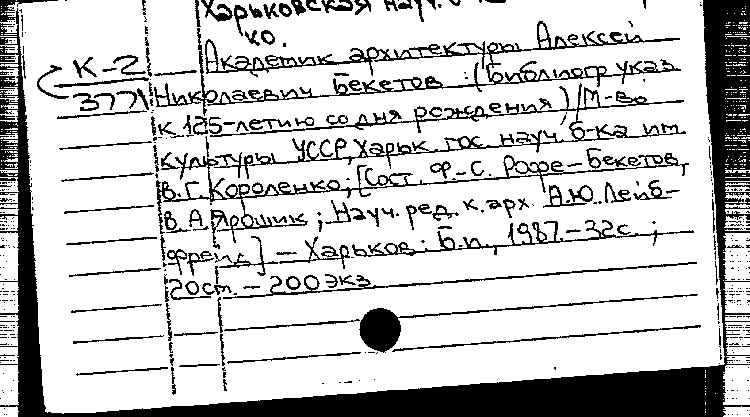 Харьковская науч.
ко.
К-2
3771
Академик архитектуры Алексей
Николаевич Бекетов : (Библиогр указ
к 125-летию со дня рождения)/М-во
культуры УССР, Харьк. гос. науч. б-ка им.
В.Г. Короленко; [Сост. Ф.-С. Рофе-Бекетов,
В.А Ярошик; Науч. ред. к. арх. А.Ю. Лейб-
фрейд] – Харьков: Б.и., 1987.–32с. ;
20см. – 200 экз